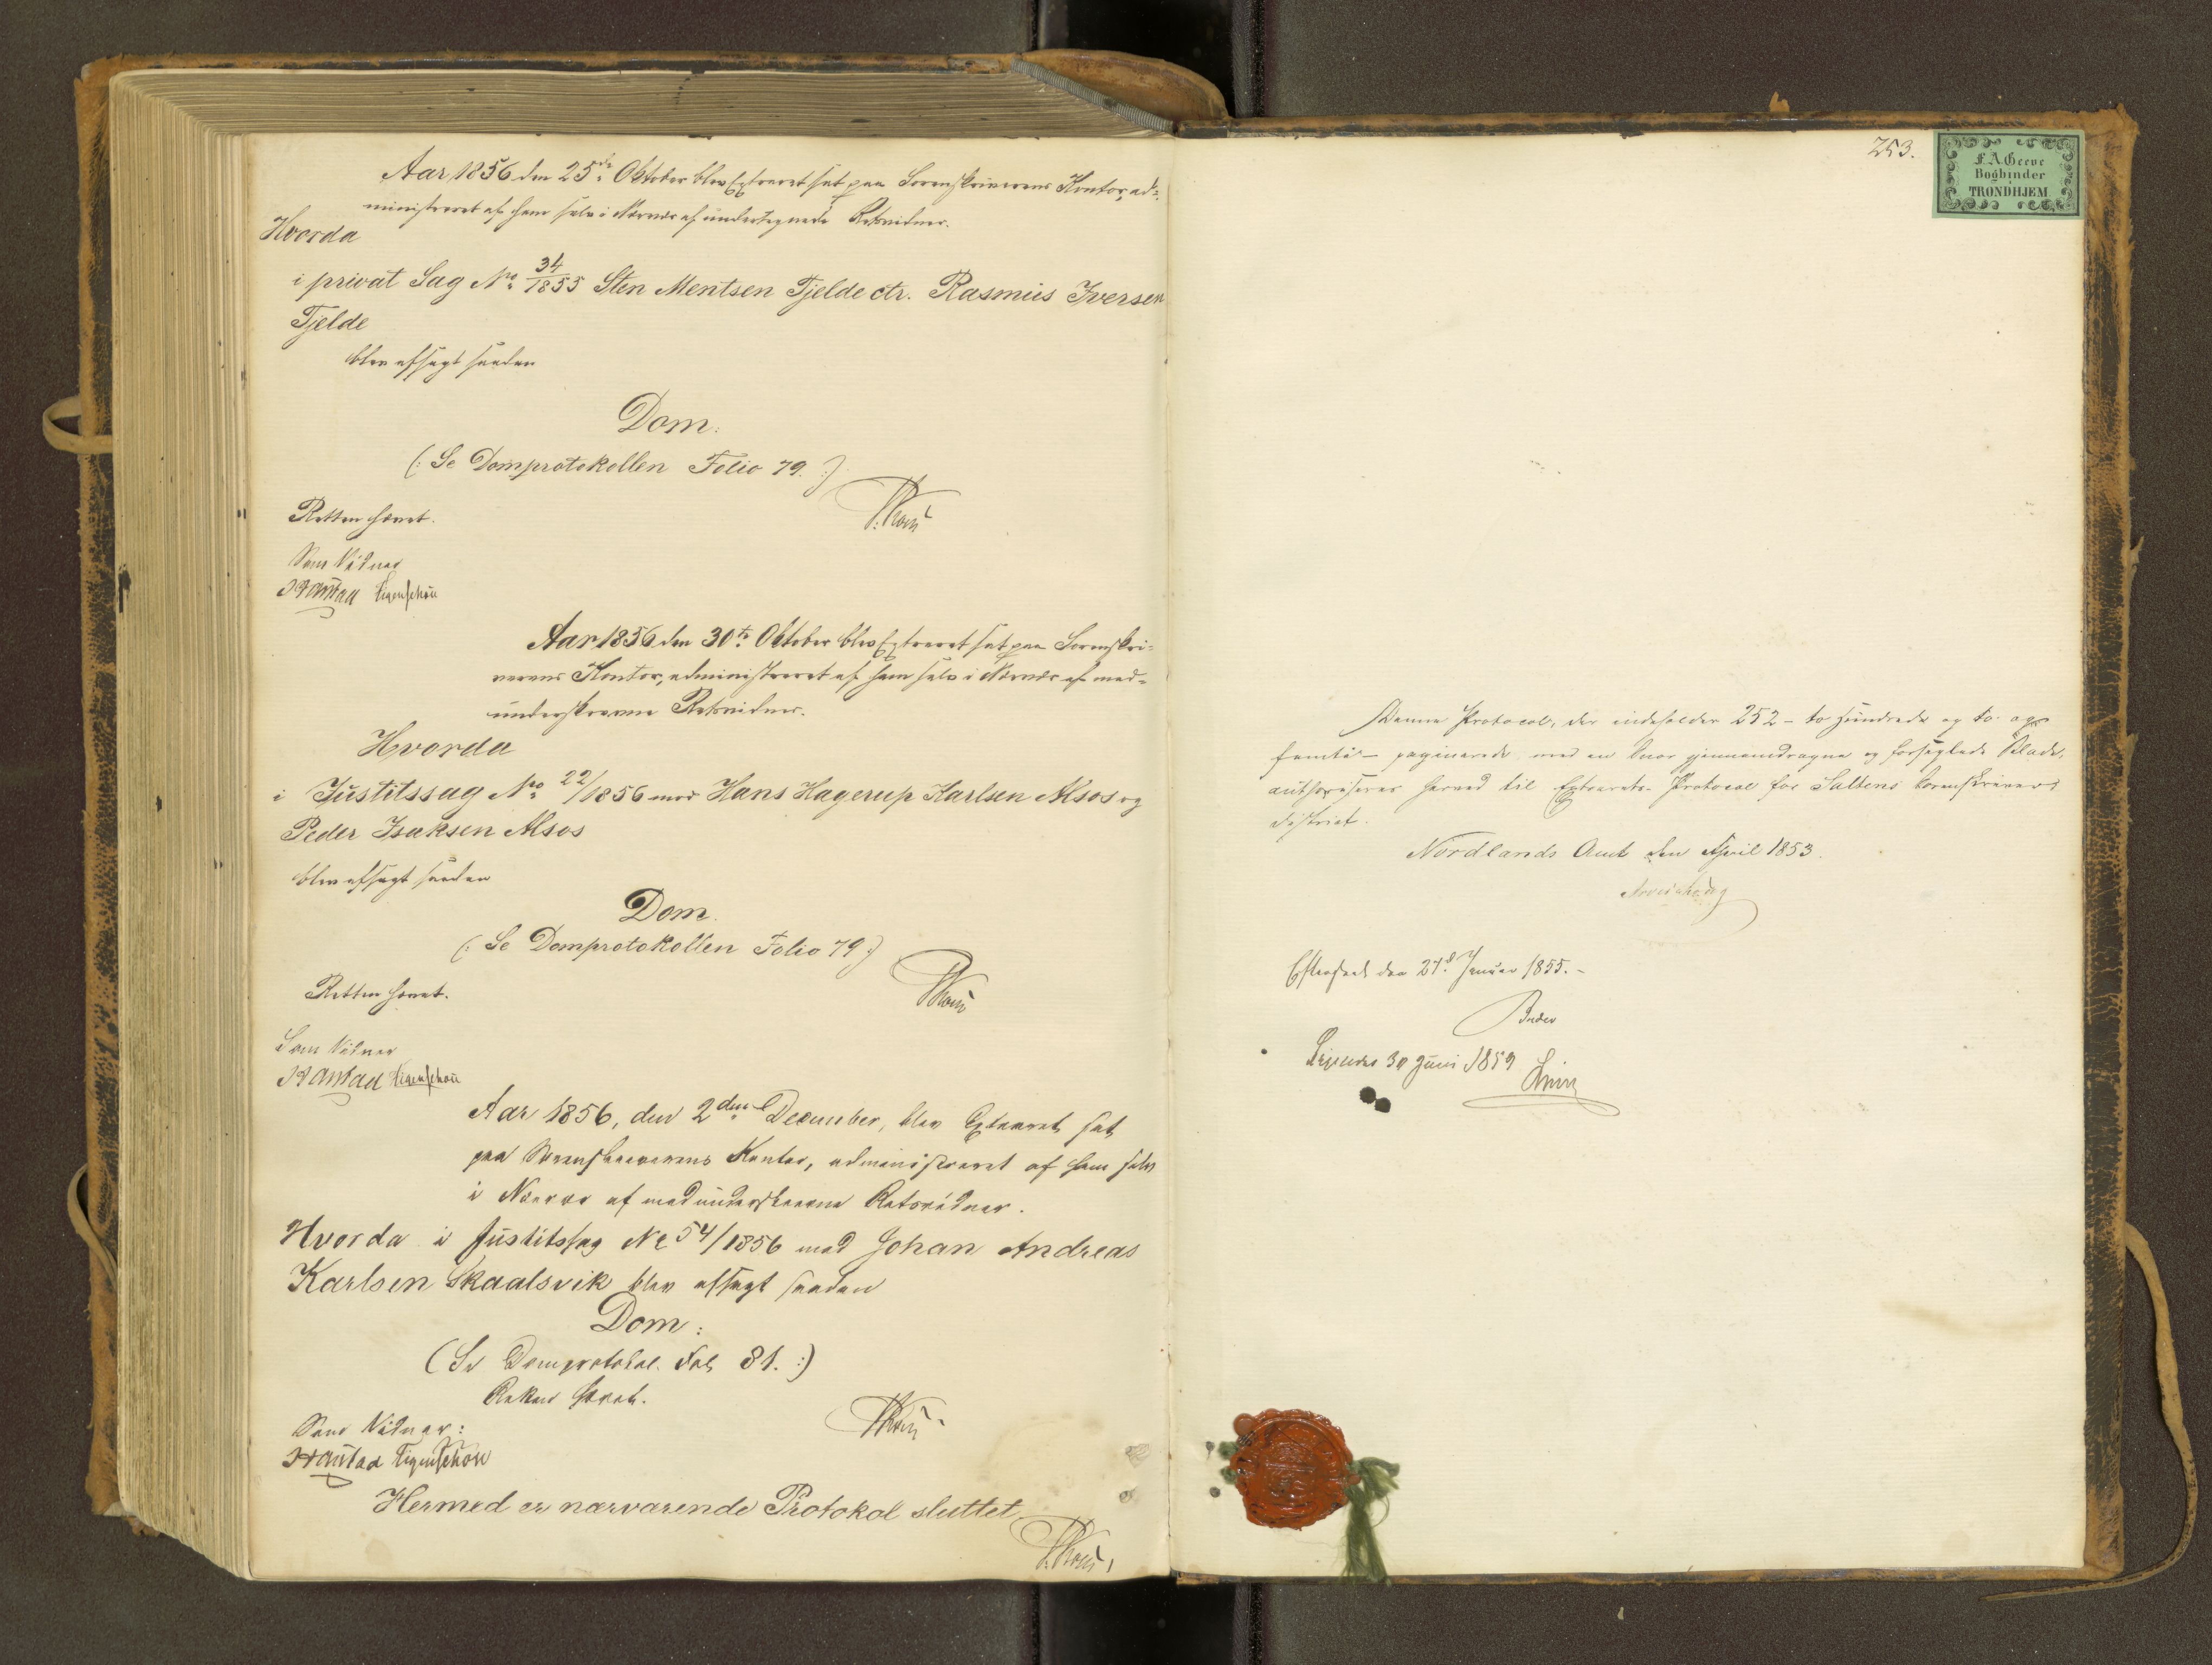 Aar 1856 den 25de Oktober blev Extraret sat paa Sorenskriverens Kontor, ad-
ministreret af ham selv i Nærvær af undertegnede Retsvidner.
Hvorda
i privat Sag No 34/1855 Sten Mentsen Tjelde ctr. Rasmus Iversen
Tjelde
blev afsagt saadan
Dom:
(: Se Domprotokollen Folio 79. :)
Retten hævet.
Som Vidner
Aar 1856 den 30te Oktober blev Extraret sat paa Sorenskri-
verens Kontor, administreret af ham selv i Nærvær af med-
underskrevne Retsvidner.
Hvorda
i Justitssag No 22/1856 mod Hans Hagerup Karlsen Alsos og
Peder Isaksen Alsos
blev afsagt saadan
Dom.
(: Se Domprotokollen Folio 79 :)
Retten hævet.
Som Vidner
Aar 1856, den 2den December, blev Extraret sat
paa Sorenskriverens Kontor, administreret af ham selv
i Nærvær af medunderskrevne Retsvidner.
Hvorda i Justitssag No 54/1856 mod Johan Andreas
Karlsen Skaalsvik blev afsagt saadan
Dom:
(Se Domprotokol. Fol. 81. :)
Retten hævet.
Som Vidner:
Hermed er nærværende Protokol sluttet.
253.
F. A. Geeve
Bogbinder
TRONDHJEM
Denne Protocol, der indeholder 252 - to hundrede og to og
femti - paginerede med en Snor gjennemdragne og forseglede Blade,
authoriseres herved til Extrarets-Protocol for Saltens Sorenskriver-
district.
Nordlands Amt den April 1853.
Efterseet den 27de Januar 1855. -
30 Juni 1859